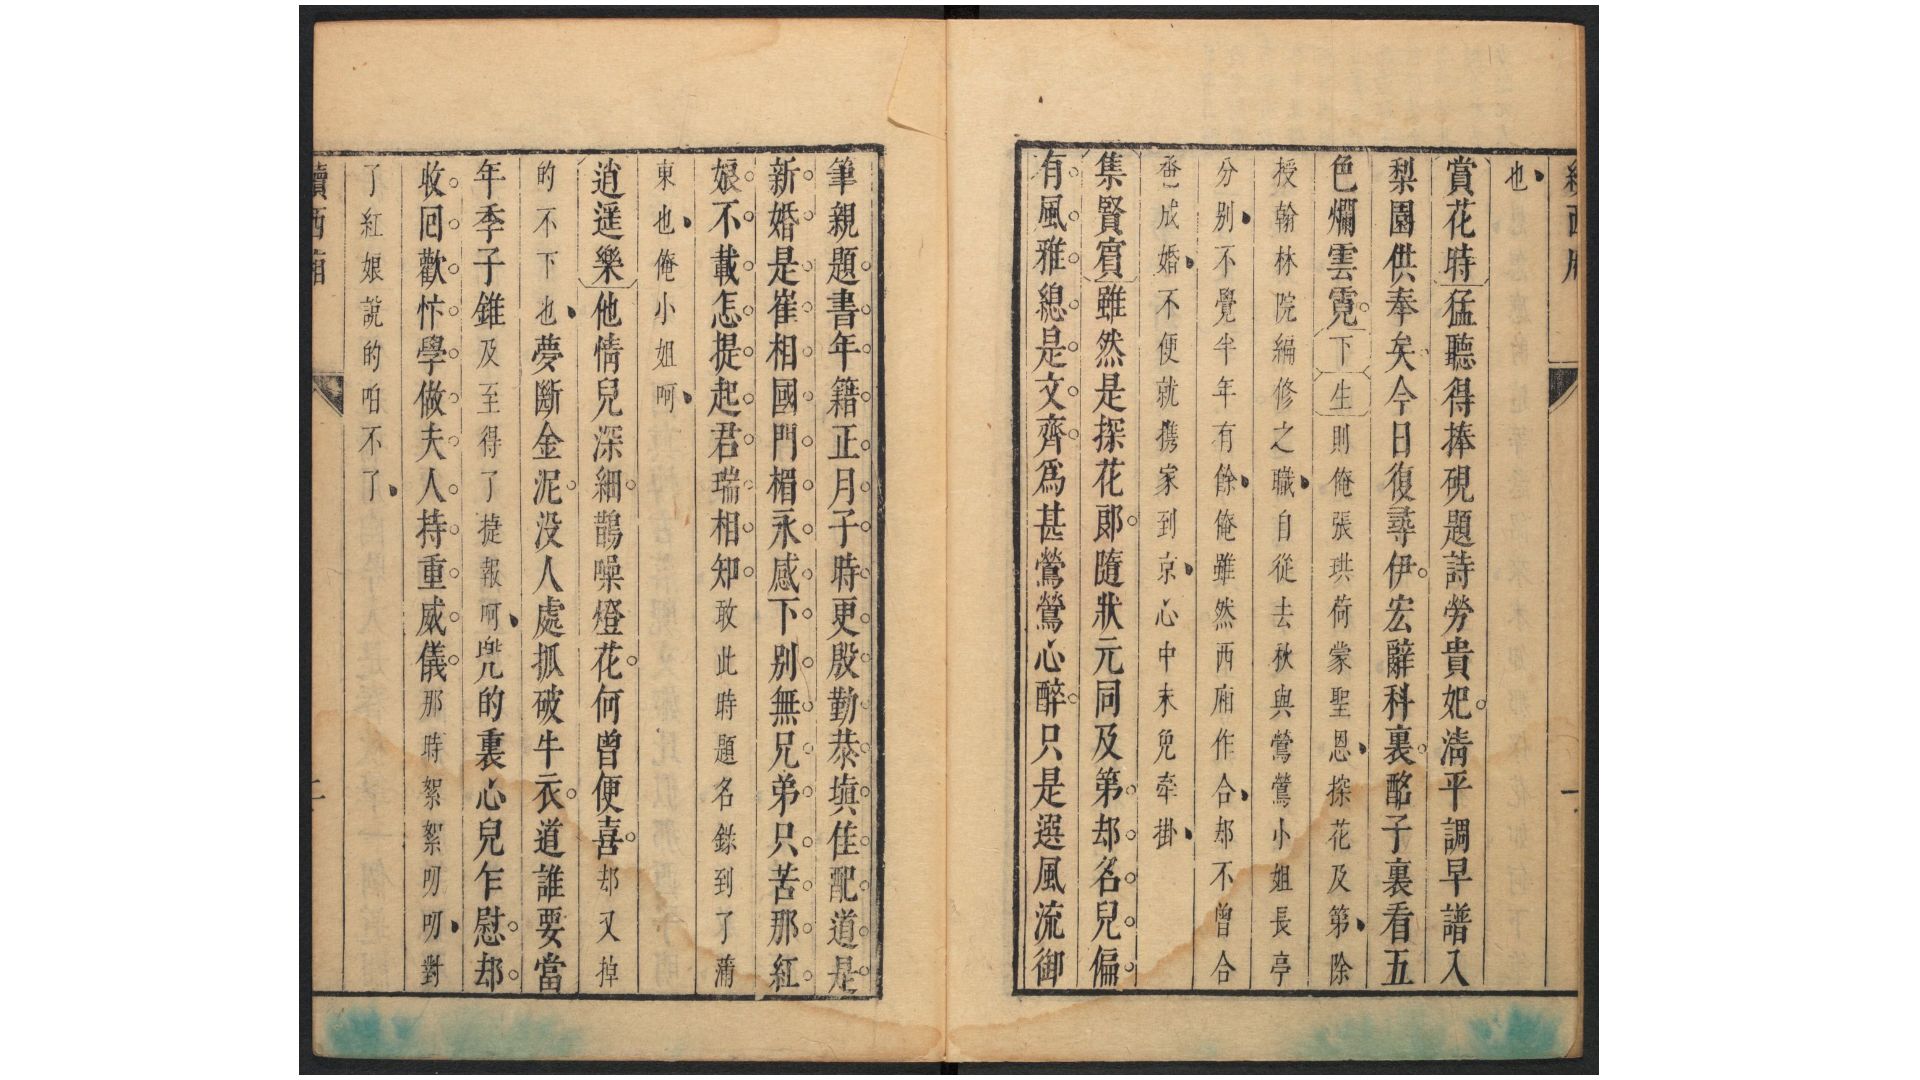 西
一
也
賞花時猛聽得捧硯題詩勞貴妃清平調早譜入
梨園供奉矣今日復尋伊宏辭科裏酩子裏看五
色爛雲霓下生則俺張珙荷蒙聖恩探花及第除
授翰林院編修之職自從去秋與鶯鶯小姐長亭
分别不覺半年有餘俺雖然西廂作合却不曾合
巹成婚不便就携家到京心中未免牽掛
集賢賔雖然是探花郎隨狀元同及第却名兒偏
有風雅緫是文齊爲甚鶯鶯心醉只是選風流御
筆親題書年籍正月子時更殷勤恭塡佳配道是
新婚是崔相國門楣永感下别無兄弟只苦那紅
娘不載怎提起君瑞相知敢此時題名錄到了蒲
東也俺小姐呵
逍遥樂他情兒深細鵲噪燈花何曾便喜却又掉
的不下也夢斷金泥没人處抓破牛衣道誰要當
年季子錐及至得了捷報呵兜的裏心兒乍慰却
收回歡忭學做夫人持重威儀那時絮絮叨叨對
了紅娘說的咱不了
續西廂
二